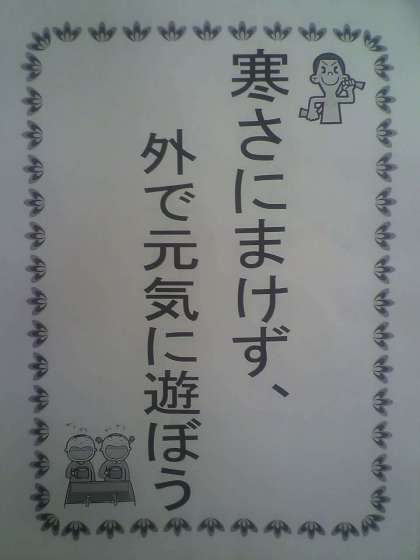 寒さにまけず、
外で元気に遊ぼう